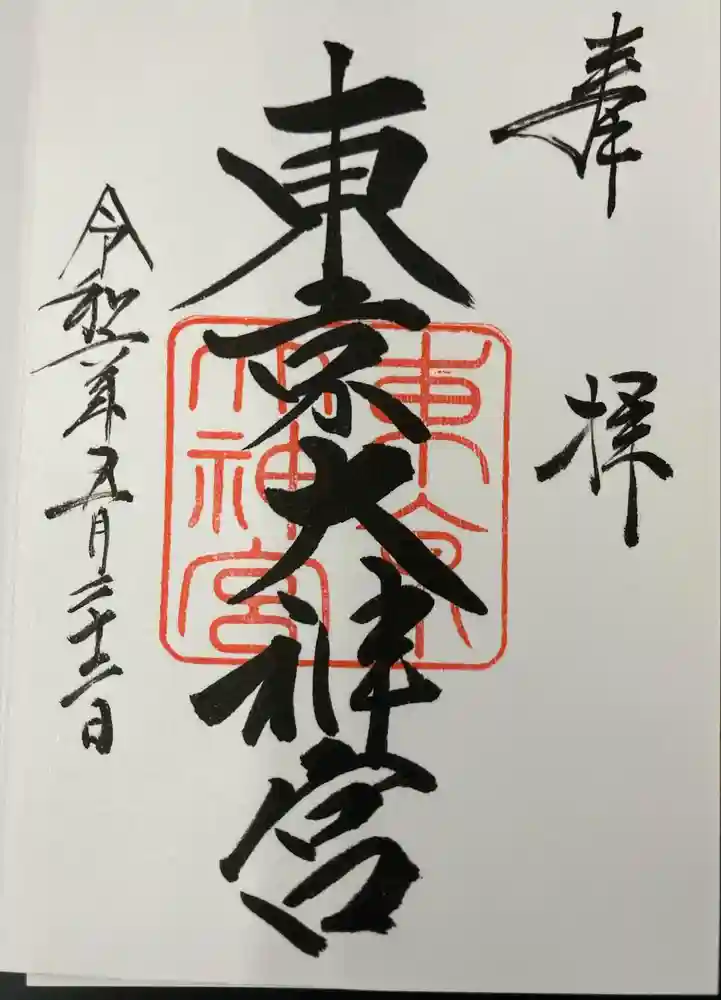 奉拝
東京大神宮
東京
大神宮
令和二年五月二十二日